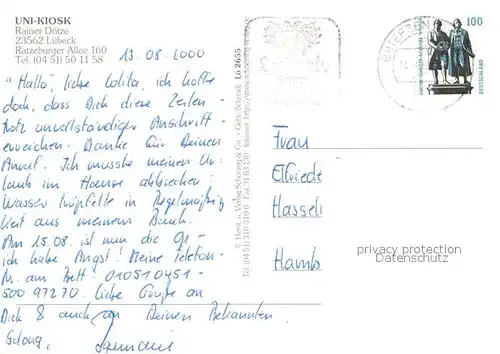 UNI-KIOSK
Rainer Dötze
23562 Lübeck
Ratzeburger Allee 160
Tel. (04 51) 50 11 58
13.08.2000
"Hallo", liebe Lolita, ich hoffe
doch, dass Dich diese Zeilen
trotz unvollständiger Anschrift
erreichen. Danke für Deinen
Anruf. Ich musste meinen Ur-
laub im Hause abbrechen:
Wasser tröpfelte in Regelmäßig
keit aus meinem Bauch.
Am 15.08. ist nun die Op -
ich habe Angst! Meine Telefon-
Nr. am Bett: 010510451-
500 97270. Liebe Grüße an
Dich & auch an Deinen Bekannten
Lü 2655
100
DEUTSCHLAND
Frau
Elfriede
Hassel
Hamb
privacy protection
(Datenschutz)